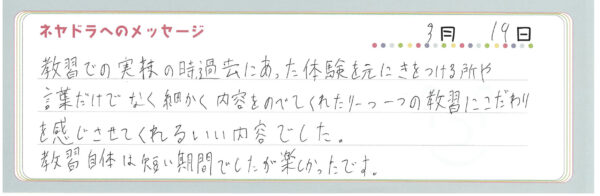 ネヤドラへのメッセージ
3月 19日
教習での実技の時過去にあった体験を元にきをつける所や
言葉だけでなく細かく内容をのべてくれたり一つ一つの教習にこだわり
を感じさせてくれるいい内容でした。
教習自体は短い期間でしたが楽しかったです。